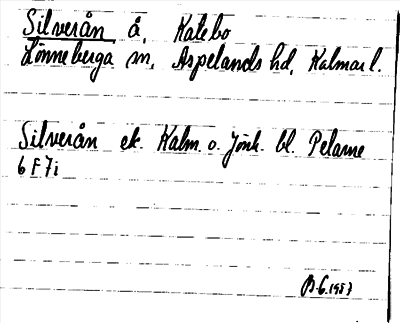 Silverån å, Katebo
Lönneberga sn, Aspelands hd, Kalmar l.
Silverån ek. Kalm. o. Jönk. bl. Pelarne
6 F 7i
B.G. 1953